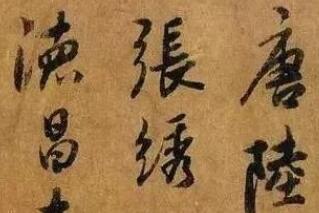 唐陸
張綉
德昌